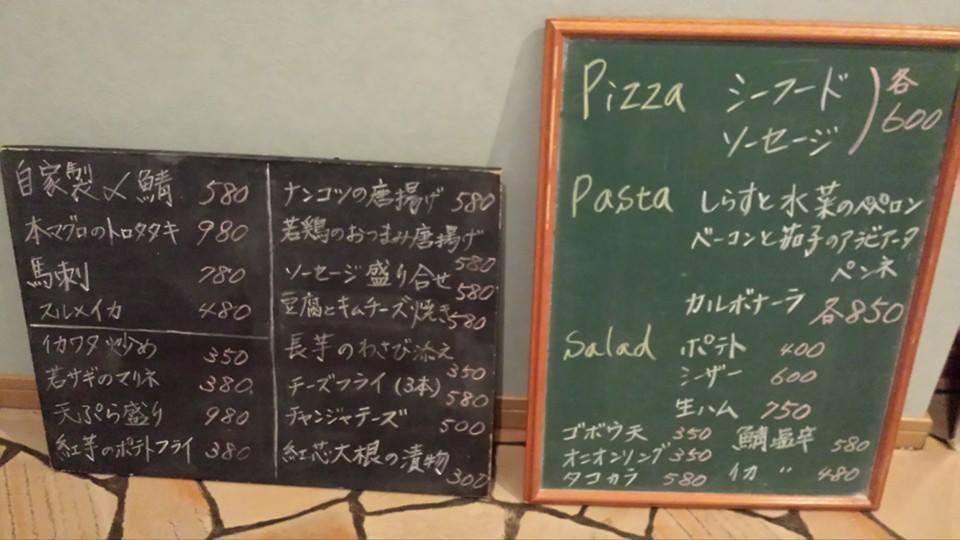 自家製〆鯖 580
本マグロのトロタタキ 980
馬刺 780
スルメイカ 480
イカワタ炒め 350
若サギのマリネ 380
天ぷら盛り 980
紅芋のポテトフライ 380
ナンコツの唐揚げ 580
若鶏のおつまみ唐揚げ 580
ソーセージ盛り合せ 580
豆腐とキムチーズ焼き 580
長芋のわさび添え 350
チーズフライ(3本) 580
チャンジャチーズ 500
紅芯大根の漬物 300
Pizza シーフード
ソーセージ
各 600
Pasta しらすと水菜のペペロン
ベーコンと茄子のアラビアータ
ペンネ
カルボナーラ 各850
Salad ポテト 400
シーザー 600
生ハム 750
ゴボウ天 350
オニオンリング 350
タコカラ 580
鯖塩辛 580
イカ 〃 480